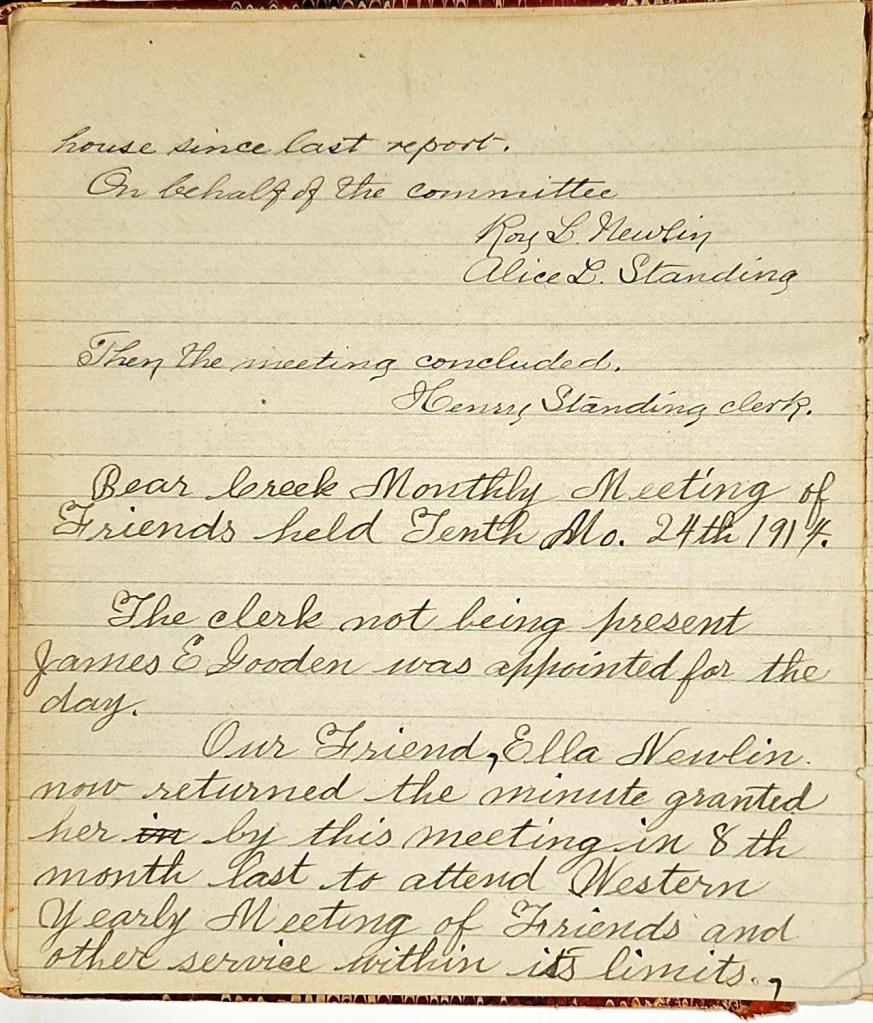 house since last report.
On behalf of the committee
Roy L. Newlin
Alice L. Standing
Then the meeting concluded.
Henry Standing clerk.
Bear Creek Monthly Meeting of
Friends held Tenth Mo. 24th 1914.
The clerk not being present
James E Gooden was appointed for the
day.
Our Friend, Ella Newlin
now returned the minute granted
her in by this meeting in 8th
month last to attend Western
Yearly Meeting of Friends and
other service within its limits.,